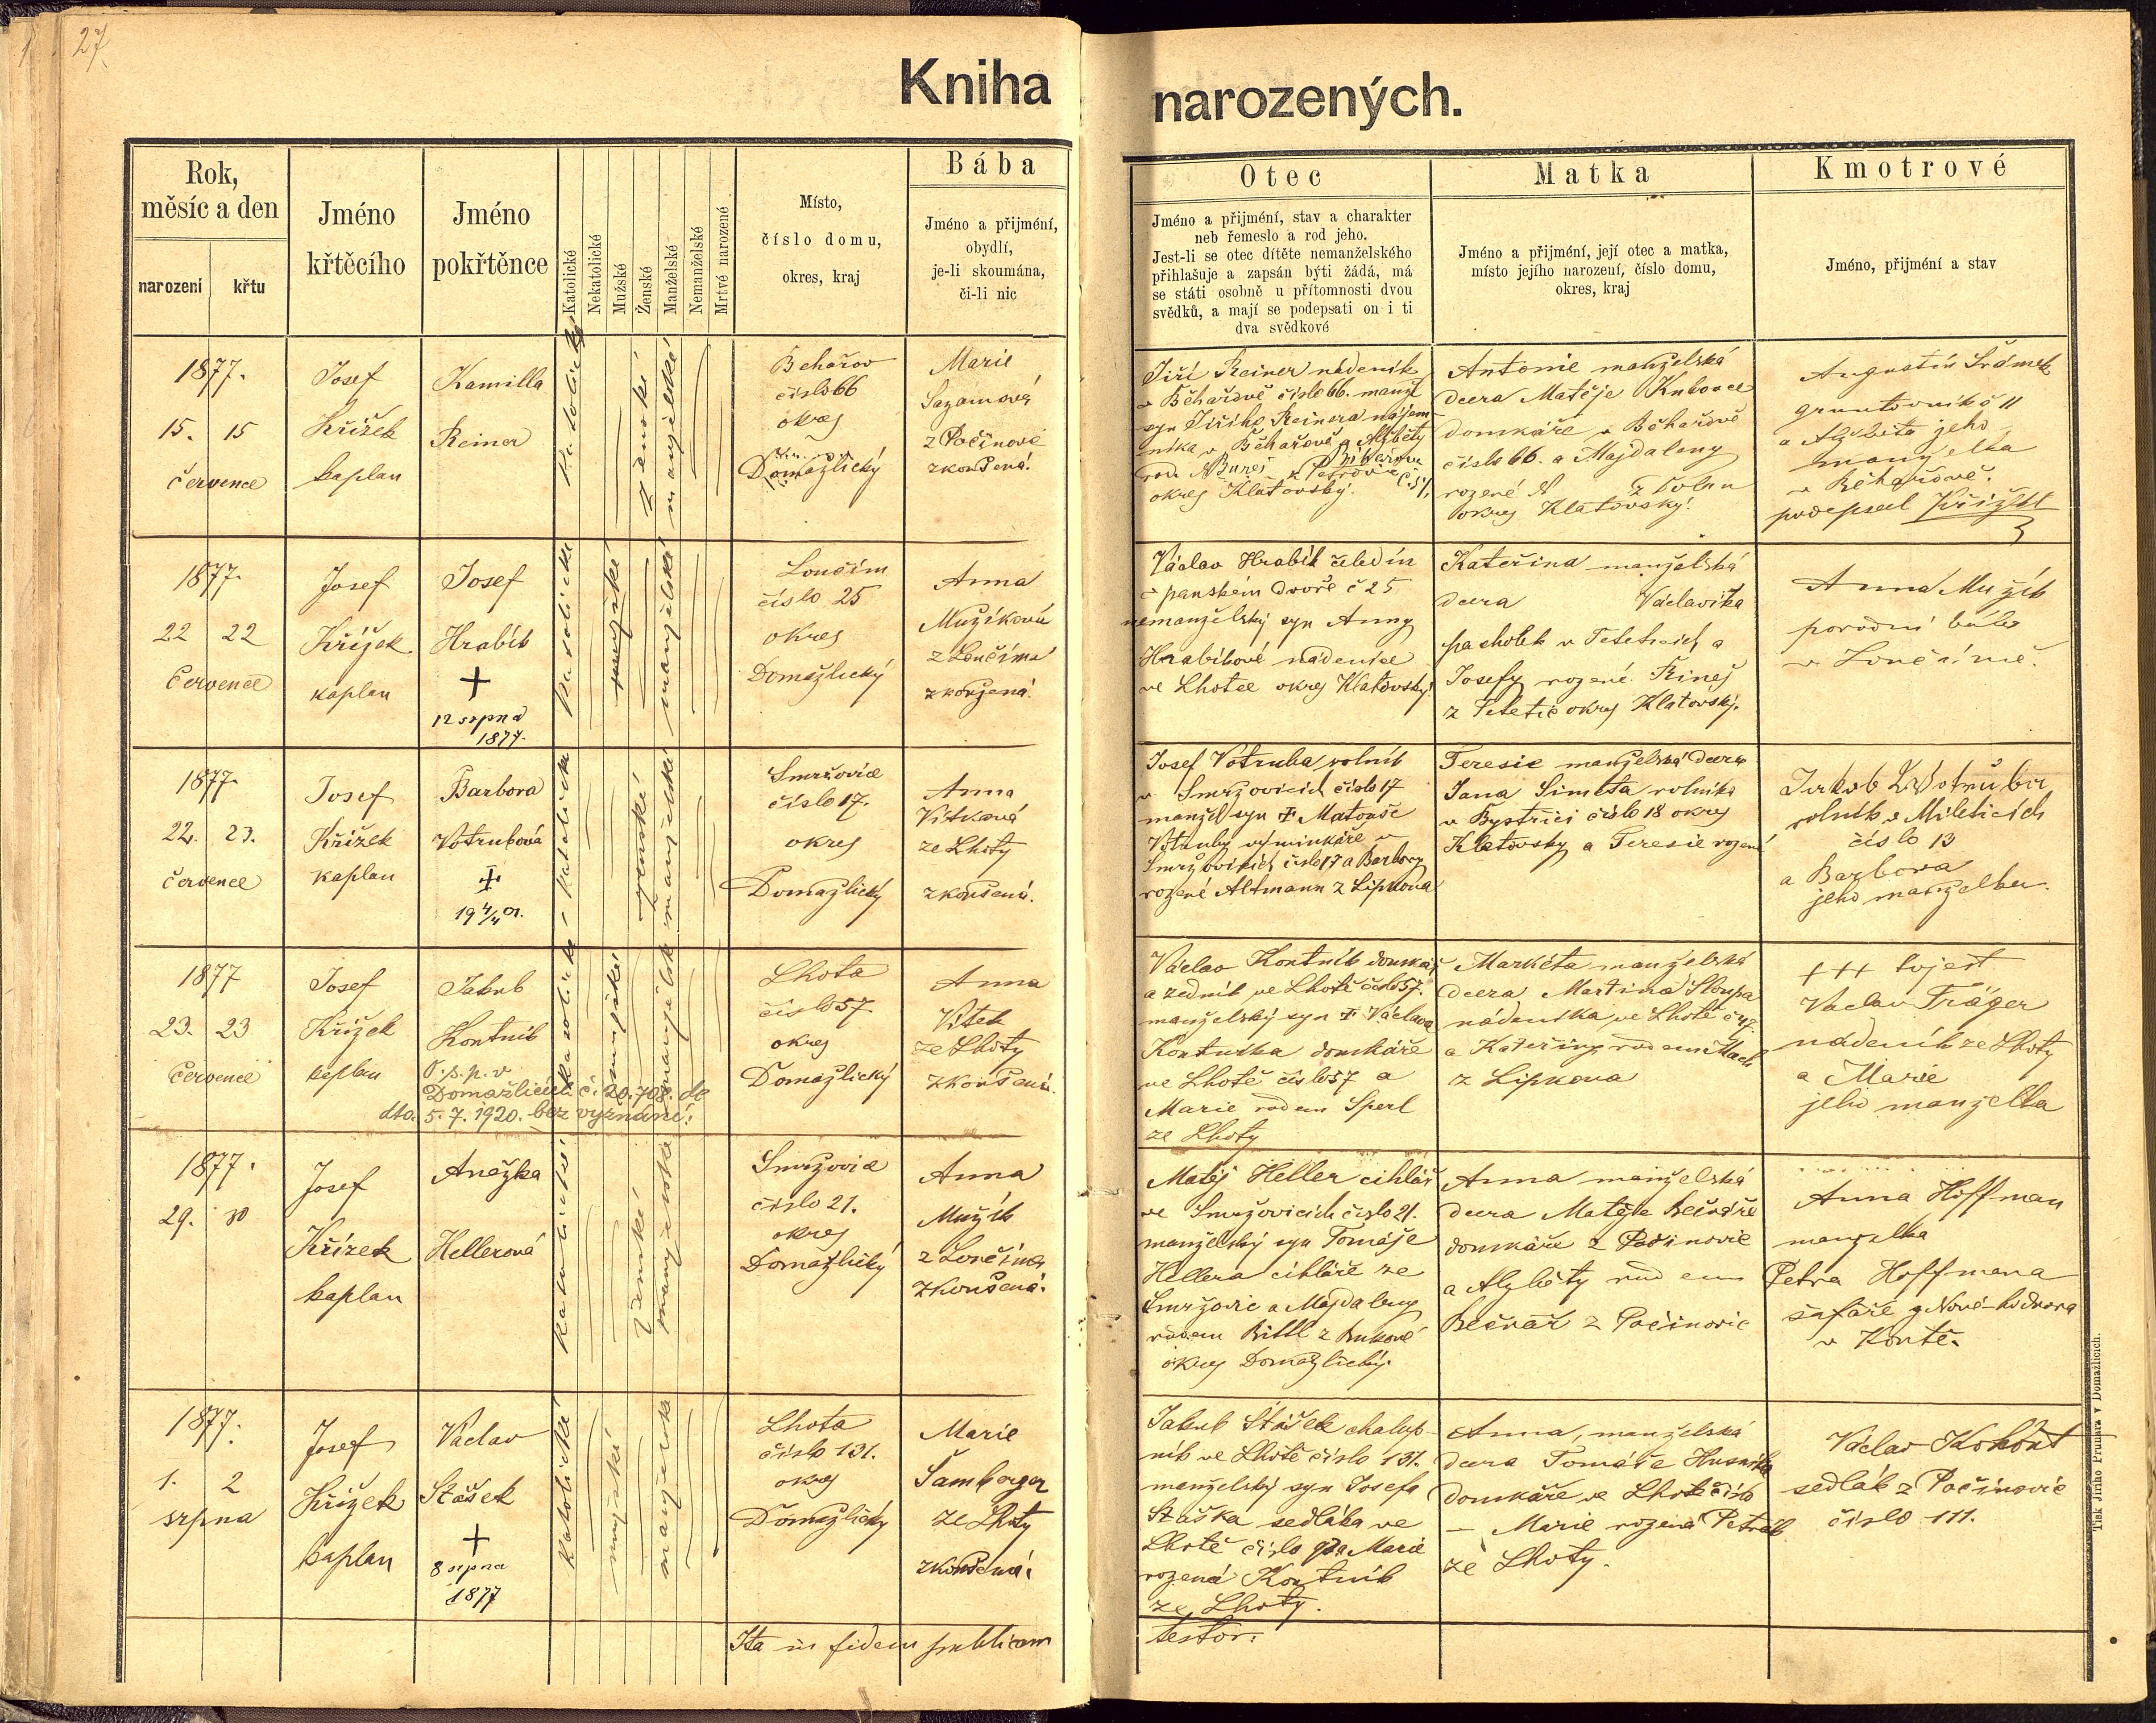 27.
Kniha narozených.
Rok,
měsíc a den
narození
křtu
Jméno
křtěcího
Jméno
pokřtěnce
Katolické
Nekatolické
Mužské
Ženské
Manželské
Nemanželské
Mrtvé narozené
Místo,
číslo domu,
okres, kraj
Bába
Jméno a přijmení,
obydlí,
je-li skoumána,
či-li nic
Otec
Jméno a přijmení, stav a charakter
neb řemeslo a rod jeho.
Jest-li se otec dítěte nemanželského
přihlašuje a zapsán býti žádá, má
se státi osobně u přítomnosti dvou
svědků, a mají se podepsati on i ti
dva svědkové
Matka
Jméno a přijmení, její otec a matka,
místo jejího narození, číslo domu,
okres, kraj
Kmotrové
Jméno, přijmení a stav
1877.
15. 15
července
Josef
Křížek
kaplan
Kamilla
Reiner
katolický
ženské
manželské
Behařov
číslo 66
okres
Domažlický
Marie
Sazamová
z Počinovic
zkoušená.
Jiří Reiner nádeník
v Běhařově číslo 66. manž
syn Jiřího Reinera nájem-
níka v Běhařově a Alžběty
okres Klatovský.
Antonie manželská
dcera Matěje Kubovce
domkáře v Běhařově
číslo 66. a Majdaleny
rozené N z
okres Klatovský.
Augustin Šrámek
gruntovník č 11
a Alžběta jeho
manželka
v Běhařově.
podepsal Křížek
1877.
22 22
Červenec
Josef
Křížek
kaplan
Josef
Hrabík
+
12 srpna
1877.
katolické
mužské
manželské
Loučim
číslo 25
okres
Domažlický
Anna
Mužíková
z Loučima
zkoušená.
Václav Hrabík čeledín
v panském dvoře č 25
nemanželský syn Anny
Hrabíkové nádenice
ve Lhotce okres Klatovský.
Kateřina manželská
dcera Václavíka
pacholek v Teteticích a
Josefy rozené Řineš
z Tetetic okres Klatovský.
Anna Mužík
porodní bába
v Loučímě.
1877.
22. 23.
červenec
Josef
Křížek
kaplan
Barbora
Votrubová
19 4/4 01.
katolické
ženské
manželské
Smržovice
číslo 17.
okres
Domažlický
Anna
Vítková
ze Lhoty
zkoušená.
Josef Votruba rolník
v Smržovicích číslo 17
manžel syn Matouše
Votruby výminkáře v
Smržovicích číslo 17 a Barbory
rozené Altmann z Lipkova
Teresie manželská dcera
Jana Šimeta rolníka
v Bystřici číslo 18 okres
Klatovský a Teresie rozené
Jakob Votruba
rolník v Mileticích
číslo 13
a Barbora
jeho manželka.
1877
23. 23
Červenec
Josef
Křížek
kaplan
Jakub
Kontník
O.s.p. v
Domažlicích č. 20.708. de
dto. 5. 7. 1920. bez vyznání!
katolické
mužské
manželské
Lhota
číslo 57.
okres
Domažlický
Anna
Vítek
ze Lhoty
zkoušená.
Václav Kontník domkář
a zedník ve Lhotě číslo 57.
manželský syn Václava
Kontníka domkáře
ve Lhotě číslo 57 a
Marie rodem Sperl
ze Lhoty
Markéta manželská
dcera Martina Sloupa
nádeníka ve Lhotě č 47.
a Kateřiny rodem Mach
z Lipkova
+++ tojest
Václav Träger
nádeník ze Lhoty
a Marie
jeho manželka
1877.
29. 30
Josef
Křížek
kaplan
Anežka
Hellerová
katolické
ženské
manželské
Smržovice
číslo 21.
okres
Domažlický
Anna
Mužík
z Loučíma
zkoušená.
Matěj Heller cihlář
ve Smržovicích číslo 21.
manželský syn Tomáše
Hellera cihláře ze
Smržovic a Majdaleny
rodem Bittl z Bukové
okres Domažlický.
Anna manželská
dcera Matěje Bečváře
domkáře z Počinovic
a Alžběty rodem
Bečvář z Počinovic
Anna Hoffman
manželka
Petra Hoffmana
šafáře z Nového dvora
v Koutě.
1877.
1. 2
srpna
Josef
Křížek
kaplan
Václav
Stašek
+
8 srpna
1877
katolické
mužské
manželské
Lhota
číslo 131.
okres
Domažlický
Marie
Šamberger
ze Lhoty
zkoušená.
Jakub Stašek chalup-
ník ve Lhotě číslo 131.
manželský syn Josefa
Staška sedláka ve
Lhotě číslo a Marie
rozená Kontník
ze Lhoty.
Anna, manželská
dcera Tomáše Husníka
domkáře ve Lhotě číslo
— Marie rozená Petrák
ze Lhoty.
Václav Kohout
sedlák z Počinovic
číslo 111.
Ita in fidem publicam testor.
Tisk Jiřího Prunara v Domažlicích.